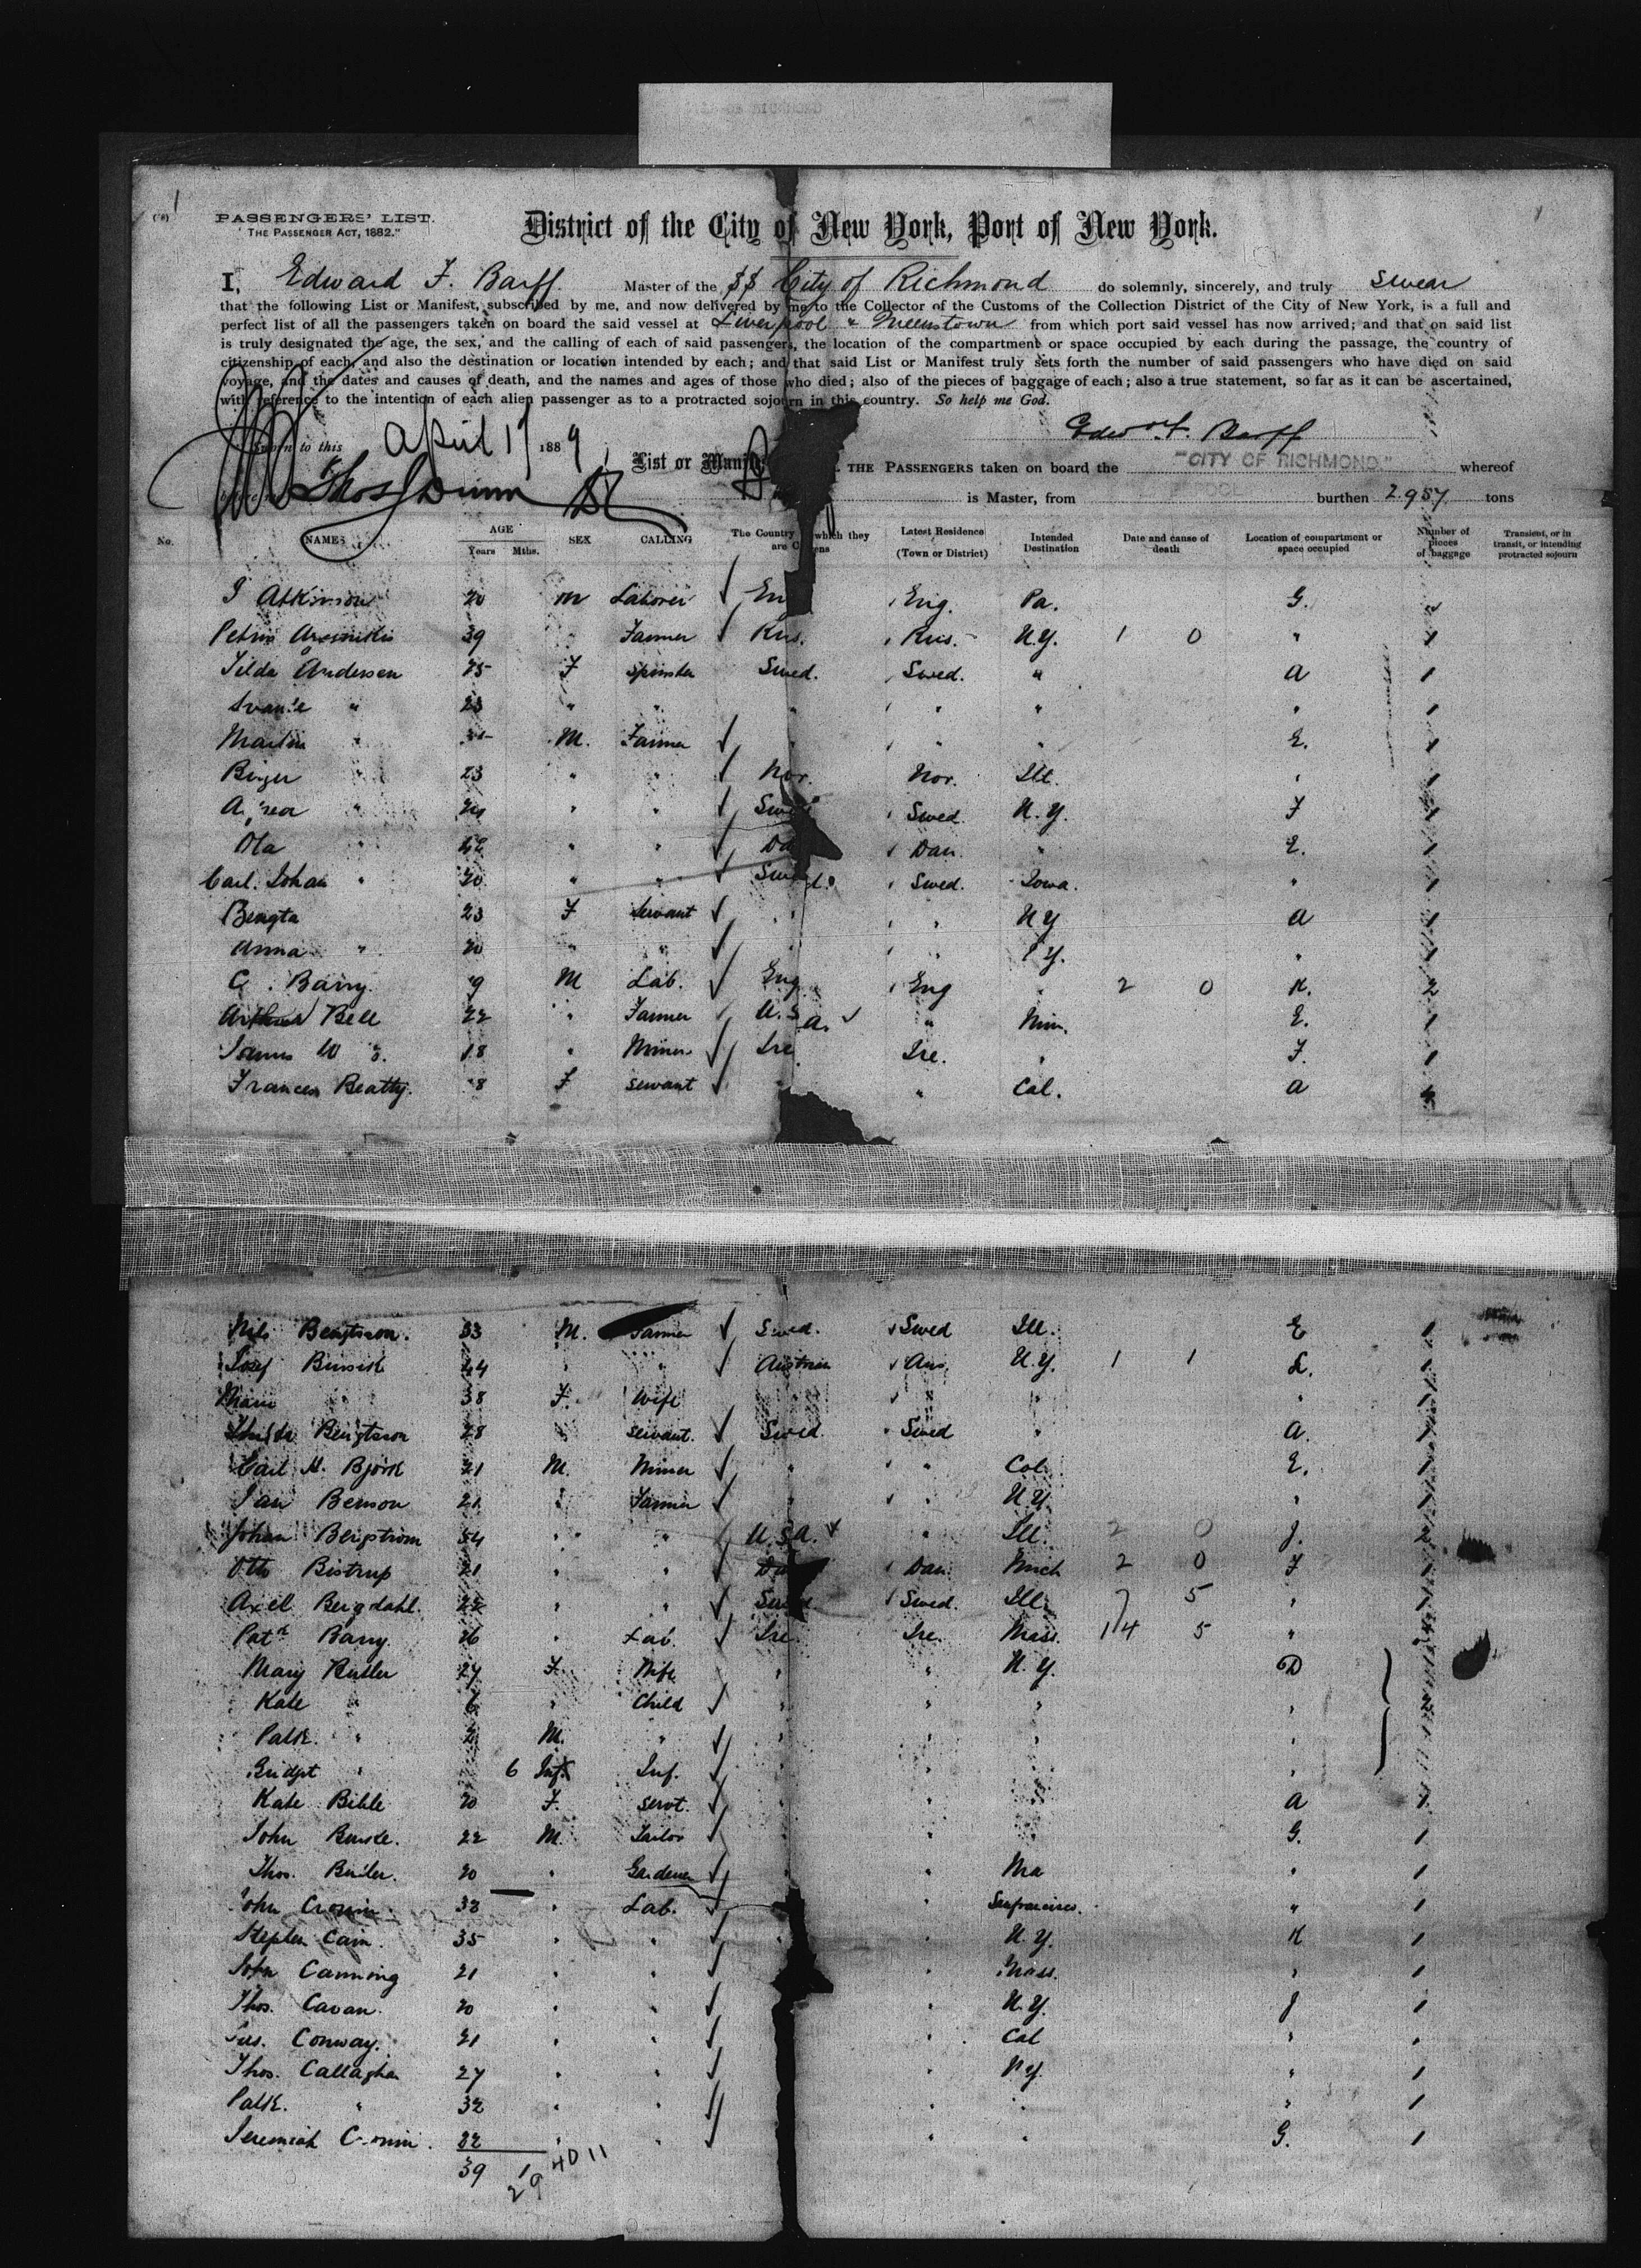 PASSENGERS' LIST.
"THE PASSENGER ACT, 1882."
District of the City of New York, Port of New York.
I, Edward F. Barff Master of the SS City of Richmond do solemnly, sincerely, and truly swear
that the following List or Manifest, subscribed by me, and now delivered by me to the Collector of the Customs of the Collection District of the City of New York, is a full and
perfect list of all the passengers taken on board the said vessel at Liverpool & Queenstown from which port said vessel has now arrived; and that on said list
is truly designated the age, the sex, and the calling of each of said passengers, the location of the compartment or space occupied by each during the passage, the country of
citizenship of each, and also the destination or location intended by each; and that said List or Manifest truly sets forth the number of said passengers who have died on said
voyage, and the dates and causes of death, and the names and ages of those who died; also of the pieces of baggage of each; also a true statement, so far as it can be ascertained,
with reference to the intention of each alien passenger as to a protracted sojourn in this country. So help me God.
Edw F. Barff
Sworn to this April 1889
List or THE PASSENGERS taken on board the "CITY OF RICHMOND" whereof
Thos Dunn is Master, from burthen 2957 tons
No. NAMES AGE Years Mths. SEX CALLING The Country which they are Latest Residence (Town or District) Intended Destination Date and cause of death Location of compartment or space occupied Number of pieces of baggage Transient, or in transit, or intending protracted sojourn
Atkinson 20 M Laborer En Eng. Pa. G.
39 " Farmer Rus. Rus. N.Y. 1 0 " 1
Tilda Andersen 25 F Spinster Swed. Swed. " A 1
" 23 " " " " " " 1
Martin " M. Farmer " " " E. 1
Birger " 23 " " Nor. Nor. Ill. " 1
" " " Swed Swed. N.Y. F 1
Ola " " " Da Dan. " E. 1
Carl Johan " 20 " " Swed. Swed. Iowa. " 1
Bengta 23 F Servant " " N.Y A 1
Anna " 20 " " " " Y. " 1
C. Barry. 9 M Lab. Eng. Eng " 2 0 K. 2
Arthur Bell 22 " Farmer U.S.A. " Min. E. 1
James 18 " Miner Ire Ire. " F. 1
Frances Beatty. 8 F servant " " Cal. A
Nils Bengtsson. 33 M. Farmer Swed. Swed Ill. E 1
Josef 44 " " Austria Aus. N.Y. 1 1 L. 1
38 F. Wife " " " " 1
Bengtsson 28 " servant. Swed. Swed " A. 1
Carl M. Bjork 21 M. Miner " " Col. E. 1
Jan Benson 21 " Farmer " " N.Y. " 1
Johan Bergstrom 54 " " U.S.A. " Ill. 2 0 J. 2
Otto Bistrup 21 " " Da Dan Mich 2 0 F 1
Axel Bergdahl. 22 " " Swed. Ill. 7 5 " 1
Patk Barry. 26 " Lab. Ire. Ire. Mass. 14 5 "
Mary Butler 27 F. Wife " " N.Y. D
Kate " 6 " Child " " " "
Patk. " 2 M. " " " " "
Bridget " 6 Inf. Inf. " " " "
Kate Bible 20 F. servt. " " " A 1
John Burke. 22 M. Tailor " " " G. 1
Thos. Butler. 20 " Gardener " " Ma " 1
John Cronin. 38 " Lab. " Sanfrancisco. " 1
Stephen Cain. 35 " " " " N.Y. K 1
John Canning 21 " " " Mass. " 1
Thos. Cavan. 20 " " " N.Y. J 1
Jas. Conway. 21 " " " Cal " "
Thos. Callaghan 27 " " " N.Y. " 1
Patk. " 32 " " " " " 1
Jeremiah Cronin. 22 " " " " G. 1
39 1 40 11
29